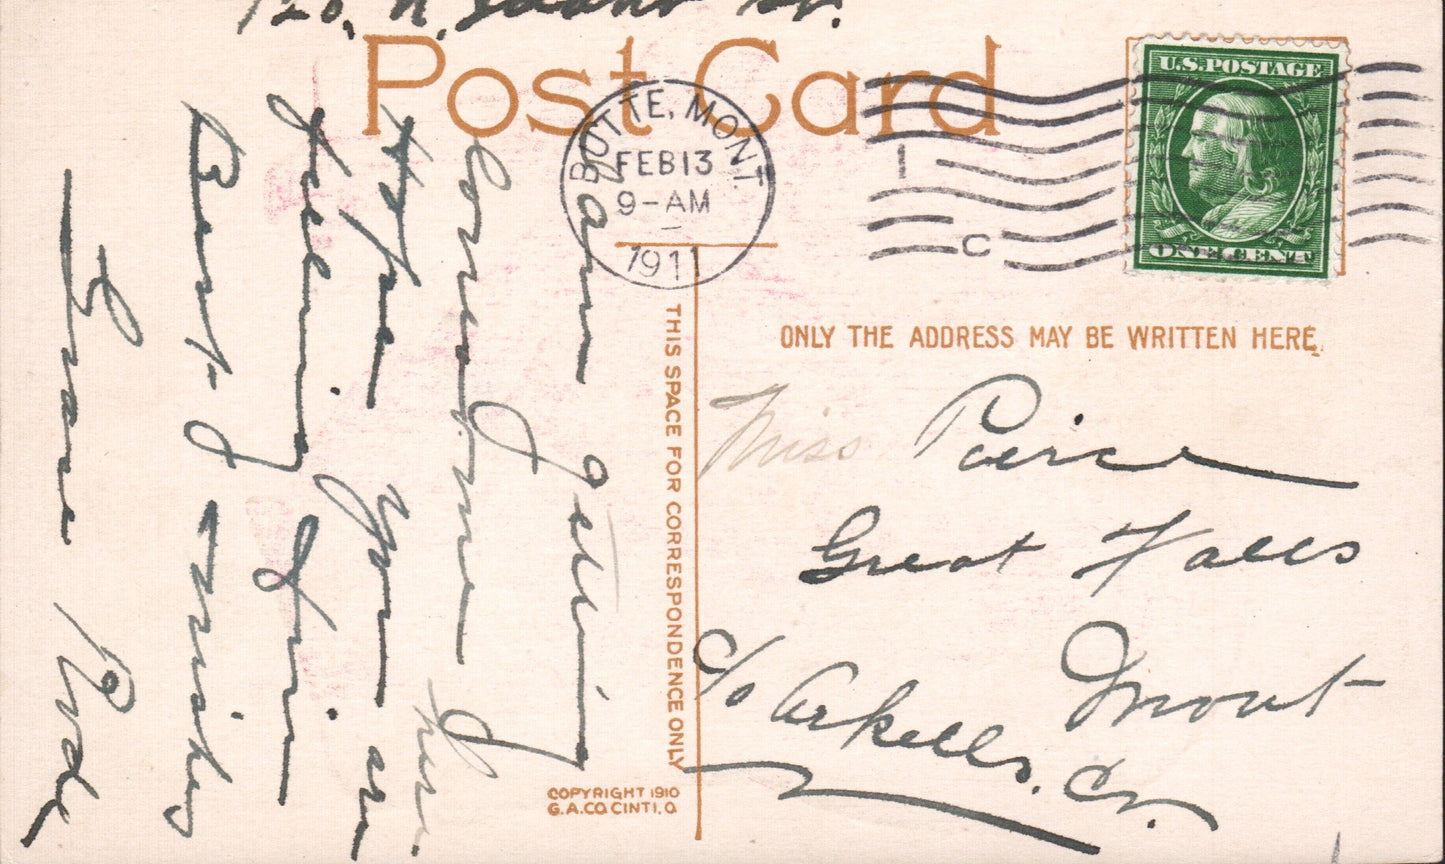 N. St.
Post Card
BUTTE, MONT.
FEB 13
9-AM
1911
1
C
U.S. POSTAGE
ONE CENT
THIS SPACE FOR CORRESPONDENCE ONLY
ONLY THE ADDRESS MAY BE WRITTEN HERE.
Am getting
along fine
Hope you are
feeling fine
Best of wishes
Grace
Miss Peirce
Great Falls
Mont
c/o Arkells. Co.
COPYRIGHT 1910
G.A.CO. CINTI, O